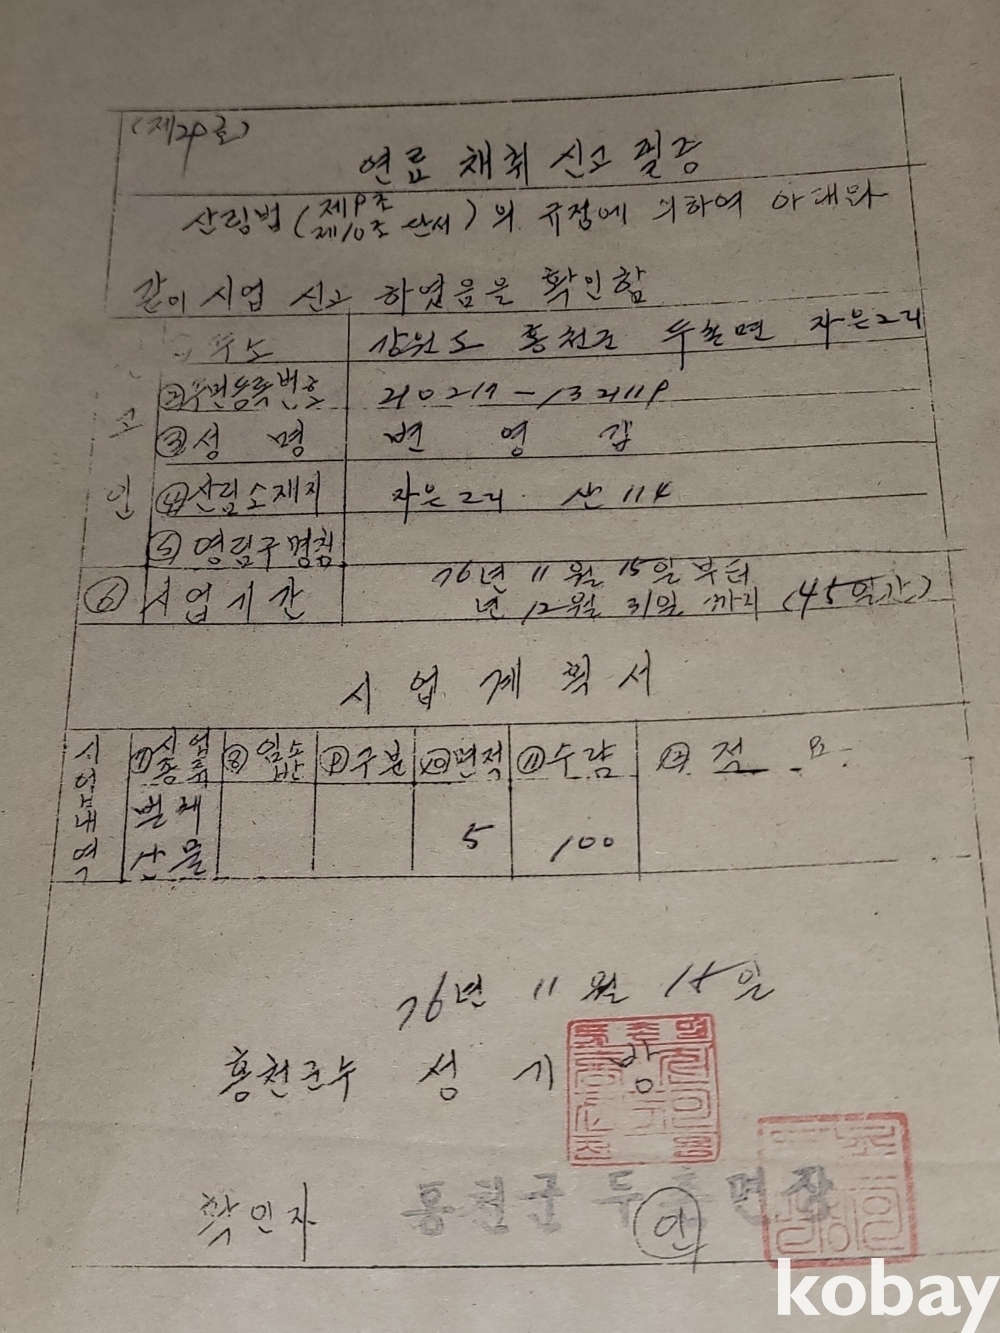 (제24호)
연료 채취 신고 필증
산림법 (제9조 제10조 단서) 의 규정에 의하여 아래와
같이 사업 신고 하였음을 확인함
주소 강원도 홍천군 두촌면 자은2리
고 ②주민등록번호 210217-1321119
③성 명 변 영 갑
인 ④산림소재지 자은2리 산 114
⑤영림구명칭
⑥ 사업기간 76년 11월 15일부터
년 12월 31일 까지 (45일간)
사 업 계 획 서
사업내역 ⑦사업종류 ⑧임소반 ⑨구분 ⑩면적 ⑪수량 ⑫적 요
벌채
산물 5 100
76년 11월 15일
홍천군수 성 기 방
확인자 홍천군 두촌면장
인
kobay